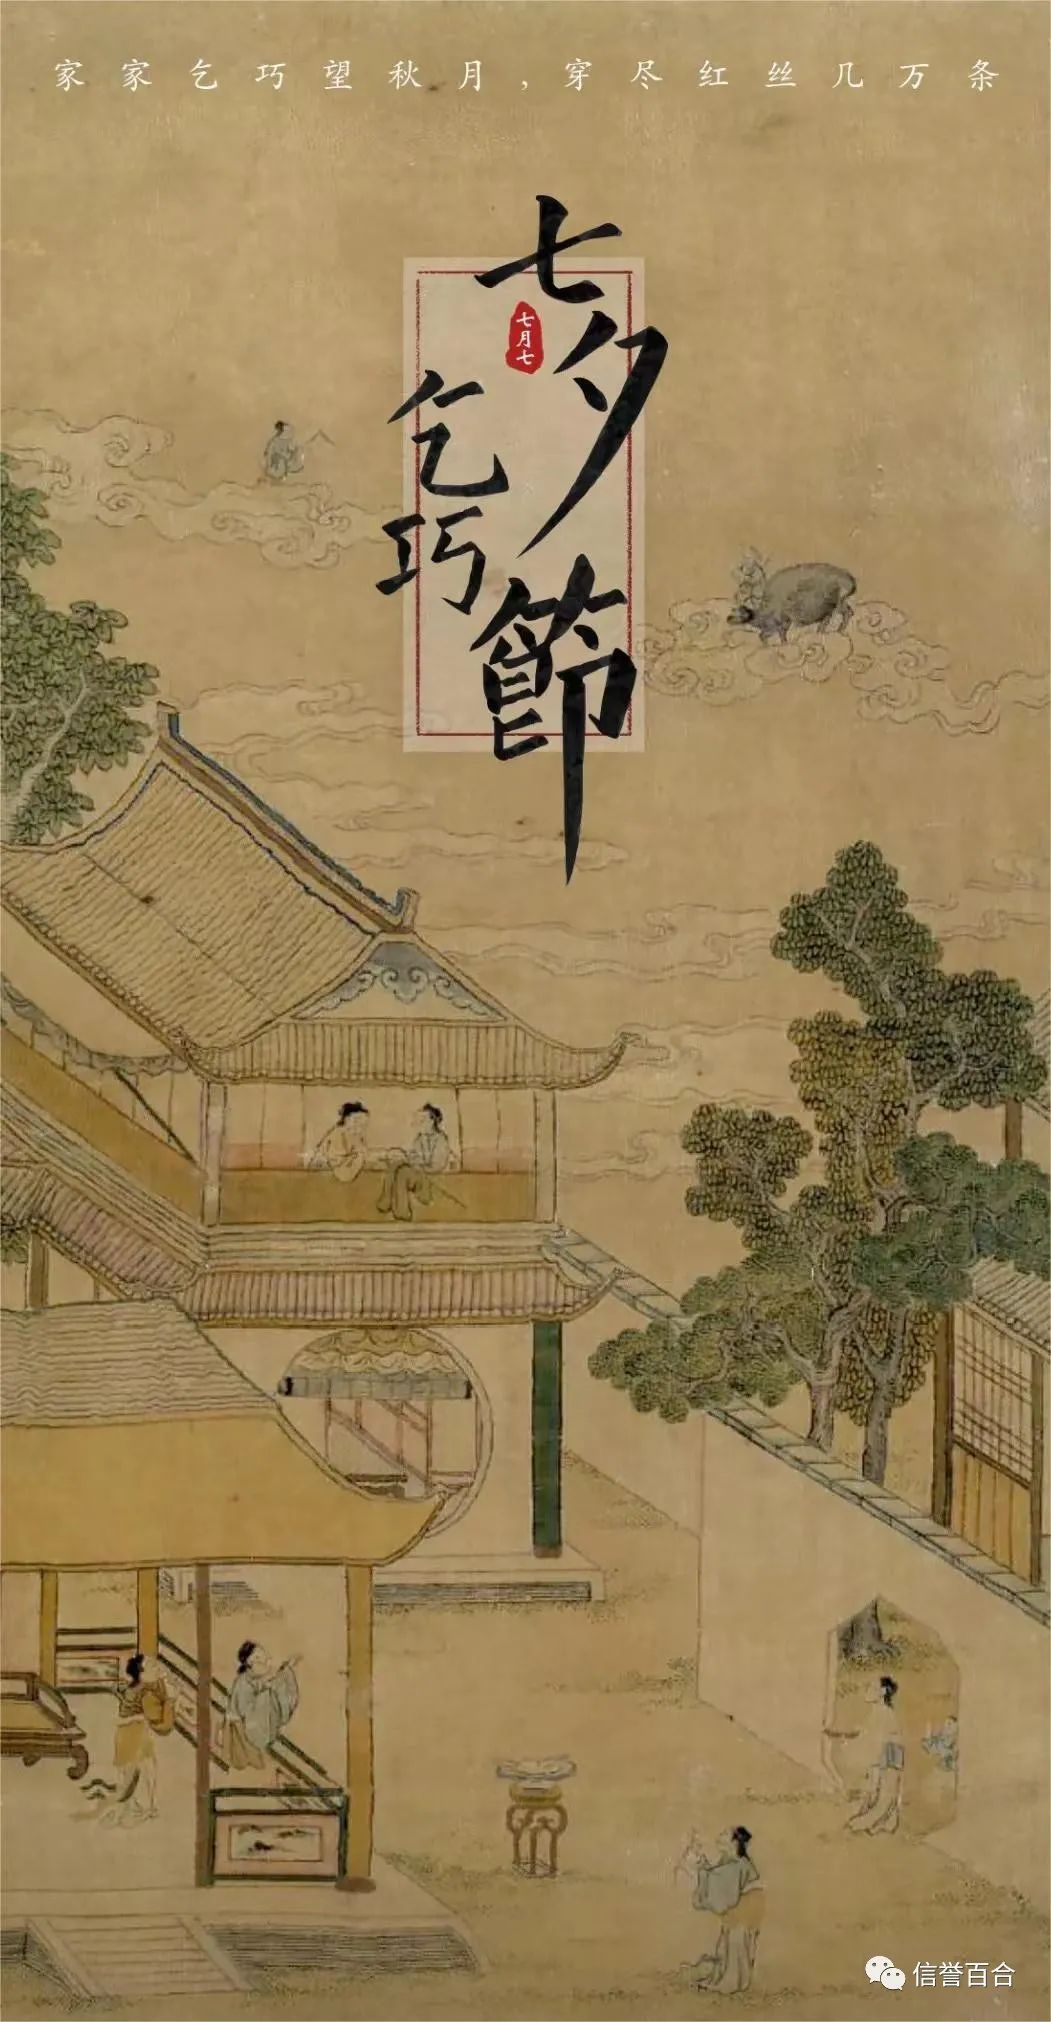 家家乞巧望秋月,穿尽红丝几万条
七夕節
七月七
乞巧
信誉百合